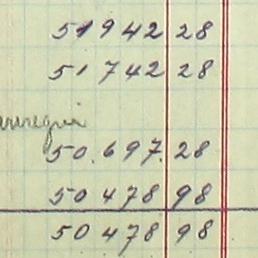 51942 28
51742 28
50.697.28
50478 98
50478 98